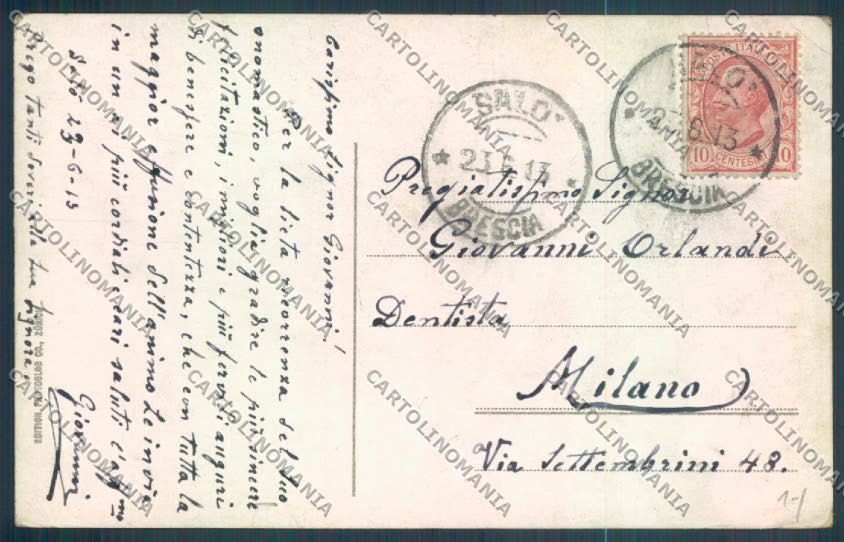 Carissimo Signor Giovanni!
Per la lieta ricorrenza del Suo
onomastico, voglia gradire le più sincere
felicitazioni, i migliori e più fervidi auguri
di benessere e contentezza, che con tutta la
maggior effusione dell'animo Le invia
in un ai più cordiali e cari saluti l'aff.mo
Salò 23-6-13
Giovanni
Prego tanti doveri alla sua Signora
EDITION PHOTOGLOB CO., ZÜRICH
SALO'
23.6.13
BRESCIA
POSTE ITALIANE
10 CENTESIMI 10
6.13
BRESCIA
Pregiatissimo Signor
Giovanni Orlandi
Dentista
Milano
Via Settembrini 48.
1-/
CARTOLINOMANIA